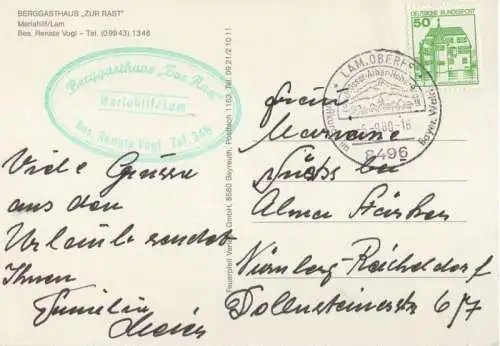 BERGGASTHAUS „ZUR RAST"
Mariahilf/Lam
Bes. Renate Vogl – Tel. (0 99 43) 13 46
Berggasthaus „Zur Rast"
Mariahilf/Lam
Bes. Renate Vogl Tel. 346
DEUTSCHE BUNDESPOST
50
LAM, OBERPF
8496
Bayer. Wald
Viele Grüsse
aus dem
Urlaub sendet
Ihnen
Familie
Frau
Marianne
bei
Alma
Nürnberg-Reicheldorf
Dollnsteinerstr 6/7
Verlag GmbH, 8580 Bayreuth, Postfach 1163, Tel. 09 21/2 10 11